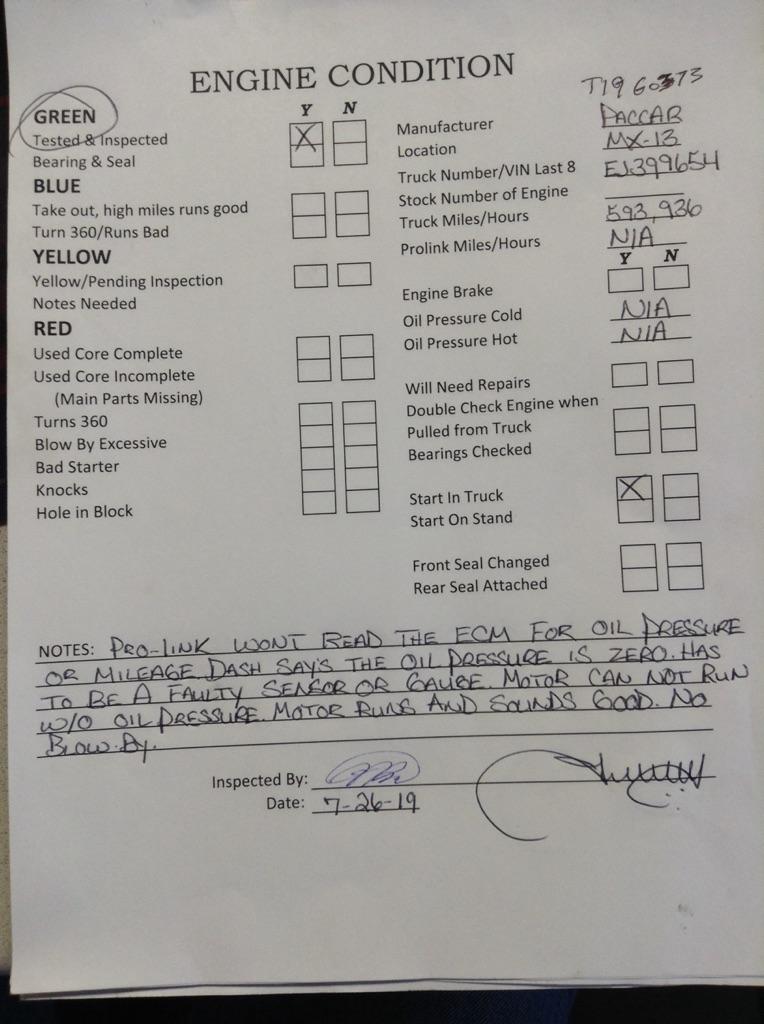 ENGINE CONDITION
T1960373
GREEN Y N
Tested & Inspected X
Bearing & Seal
BLUE
Take out, high miles runs good
Turn 360/Runs Bad
YELLOW
Yellow/Pending Inspection
Notes Needed
RED
Used Core Complete
Used Core Incomplete
(Main Parts Missing)
Turns 360
Blow By Excessive
Bad Starter
Knocks
Hole in Block
Manufacturer PACCAR
Location MX-13
Truck Number/VIN Last 8 EJ399654
Stock Number of Engine
Truck Miles/Hours 593,936
Prolink Miles/Hours N/A
Y N
Engine Brake
Oil Pressure Cold N/A
Oil Pressure Hot N/A
Will Need Repairs
Double Check Engine when
Pulled from Truck
Bearings Checked
Start In Truck X
Start On Stand
Front Seal Changed
Rear Seal Attached
NOTES: PRO-LINK WONT READ THE ECM FOR OIL PRESSURE
OR MILEAGE. DASH SAY'S THE OIL PRESSURE IS ZERO. HAS
TO BE A FAULTY SENSOR OR GAUGE. MOTOR CAN NOT RUN
W/O OIL PRESSURE. MOTOR RUNS AND SOUNDS GOOD. NO
BLOW-BY.
Inspected By:
Date: 7-26-19